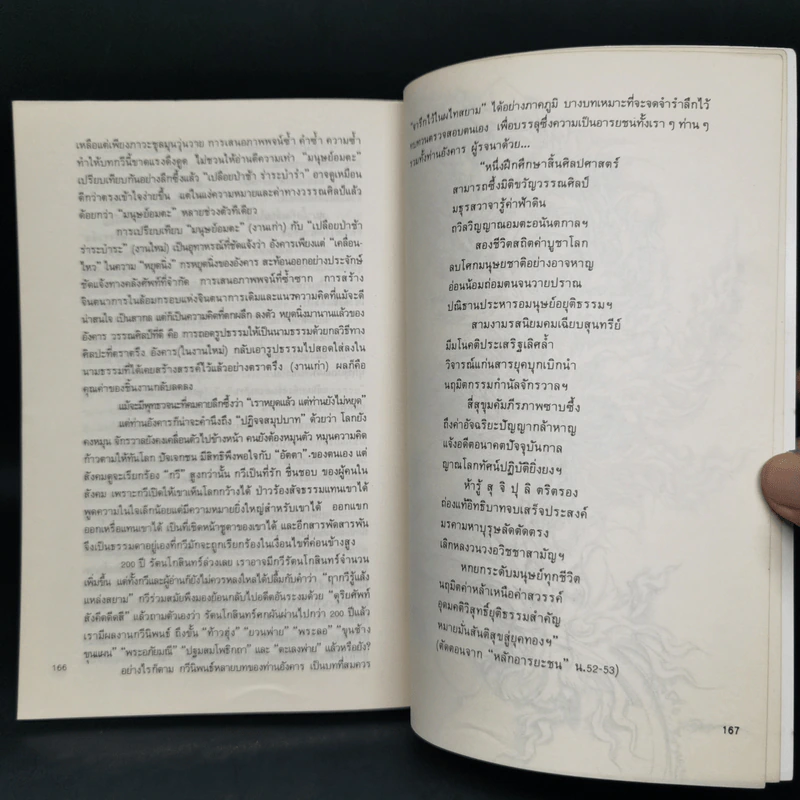 เหลือแต่เพียงภาวะชุลมุนวุ่นวาย การเสนอภาพพจน์ซ้ำ คำซ้ำ ความซ้ำ
ทำให้บทกวีนี้ขาดแรงดึงดูด ไม่ชวนให้อ่านตีความเท่า "มนุษย์อมตะ"
เปรียบเทียบกันอย่างลึกซึ้งแล้ว "เปลือยป่าช้า ร่าระบำรำ" อาจดูเหมือน
ดีกว่าตรงเข้าใจง่ายขึ้น แต่ในแง่ความหมายและค่าทางวรรณศิลป์แล้ว
ด้อยกว่า "มนุษย์อมตะ" หลายช่วงตัวทีเดียว
การเปรียบเทียบ "มนุษย์อมตะ" (งานเก่า) กับ "เปลือยป่าช้า
ร่าระบำระบำ" (งานใหม่) เป็นอุทาหรณ์ที่ชัดแจ้งว่า อังคารเพียงแต่ "เคลื่อน-
ไหว" ในความ "หยุดนิ่ง" การหยุดนิ่งของอังคาร สะท้อนออกอย่างประจักษ์
ชัดแจ้งทางคลังศัพท์ที่จำกัด การเสนอภาพพจน์ที่ซ้ำซาก การสร้าง
จินตนาการในล้อมกรอบแห่งจินตนาการเดิมและแนวความคิดที่แม้จะดี
น่าสนใจ เป็นสากล แต่ก็เป็นความคิดที่ตกผลึก ลงตัว หยุดนิ่งมานานแล้วของ
อังคาร วรรณศิลป์ที่ดี คือ การถอดรูปธรรมให้เป็นนามธรรมด้วยกลวิธีทาง
ศิลปะที่ตราตรึง อังคาร(ในงานใหม่) กลับเอารูปธรรมไปสอดใส่ลงใน
นามธรรมที่ได้เคยสร้างสรรค์ไว้แล้วอย่างตราตรึง (งานเก่า) ผลก็คือ
คุณค่าของชิ้นงานกลับลดลง
แม้จะมีพุทธวจนะที่คมคายลึกซึ้งว่า "เราหยุดแล้ว แต่ท่านยังไม่หยุด"
แต่ท่านอังคารก็น่าจะคำนึงถึง "ปฏิจจสมุปบาท" ด้วยว่า โลกยัง
คงหมุน จักรวาลยังคงเคลื่อนตัวไปข้างหน้า คนยังต้องหมุนตัว หมุนความคิด
ก้าวตามให้ทันโลก ปัจเจกชน มีสิทธิพึงพอใจกับ "อัตตา" ของตนเอง แต่
สังคมดูจะเรียกร้อง "กวี" สูงกว่านั้น กวีเป็นที่รัก ชื่นชอบ ของผู้คนใน
สังคม เพราะกวีเปิดให้เขาเห็นโลกกว้างได้ ป่าวร้องสัจธรรมแทนเขาได้
พูดความในใจเล็กน้อยแต่มีความหมายยิ่งใหญ่สำหรับเขาได้ ออกแขก
ออกเหรื่อแทนเขาได้ เป็นที่เชิดหน้าชูตาของเขาได้ และอีกสารพัดสารพัน
จึงเป็นธรรมดาอยู่เองที่กวีมักจะถูกเรียกร้องในเงื่อนไขที่ค่อนข้างสูง
200 ปี รัตนโกสินทร์ล่วงเลย เราอาจมีกวีรัตนโกสินทร์จำนวน
เพิ่มขึ้น แต่ทั้งกวีและผู้อ่านก็ยังไม่ควรหลงใหลได้ปลื้มกับคำว่า "ฤากวีรู้แล้ง
แหล่งสยาม" กวีร่วมสมัยพึงมองย้อนกลับไปถึงอดีตอันระงมด้วย "ดุริยศัพท์
สังคีตดีดสี" แล้วถามตัวเองว่า รัตนโกสินทร์ศกผันผ่านไปกว่า 200 ปีแล้ว
เรามีผลงานกวีนิพนธ์ ถึงขั้น "ท้าวฮุ่ง" "ยวนพ่าย" "พระลอ" "ขุนช้าง
ขุนแผน" "พระอภัยมณี" "ปฐมสมโพธิกถา" และ "ตะเลงพ่าย" แล้วหรือยัง?
อย่างไรก็ตาม กวีนิพนธ์หลายบทของท่านอังคาร เป็นบทที่สมควร
166
"จารึกไว้ในผไทสยาม" ได้อย่างภาคภูมิ บางบทเหมาะที่จะจดจำรำลึกไว้
ทบทวนตรวจสอบตนเอง เพื่อบรรลุซึ่งความเป็นอารยชนทั้งเรา ๆ ท่าน ๆ
รวมทั้งท่านอังคาร ผู้รจนาด้วย...
"หนึ่งฝึกศึกษาสิ้นศิลปศาสตร์
สามารถซึ้งมิติขวัญวรรณศิลป์
มธุรสวาจารู้ค่าฟ้าดิน
ถวิลวิญญาณอมตะอนันตกาลฯ
สองชีวิตสถิตค่าบูชาโลก
ลบโศกมนุษยชาติอย่างอาจหาญ
อ่อนน้อมถ่อมตนจนวายปราณ
ปณิธานประหารอมนุษย์อยุติธรรมฯ
สามงามรสนิยมคมเฉียบสุนทรีย์
มีมโนคติประเสริฐเลิศล้ำ
วิจารณ์แก่นสารยุคบุกเบิกนำ
นฤมิตกรรมกำนัลจักรวาลฯ
สี่สุขุมคัมภีรภาพซาบซึ้ง
ถึงค่าอัจฉริยะปัญญากล้าหาญ
แจ้งอดีตอนาคตปัจจุบันกาล
ญาณโลกทัศน์ปฏิบัติยิ่งยงฯ
ห้ารู้ สุ จิ ปุ ลิ ตริตรอง
ถ่องแท้อิทธิบาทจบเสร็จประสงค์
มรคามหาบุรุษลัดตัดตรง
เลิกหลงวนวงอวิชชาสามัญฯ
หกยกระดับมนุษย์ทุกชีวิต
นฤมิตค่าหล้าเหนือค่าสวรรค์
อุดมคติวิสุทธิ์ยุติธรรมสำคัญ
หมายมั่นสันติสุขสู่ยุคทองฯ"
(คัดตอนจาก "หลักอารยะชน" น.52-53)
167